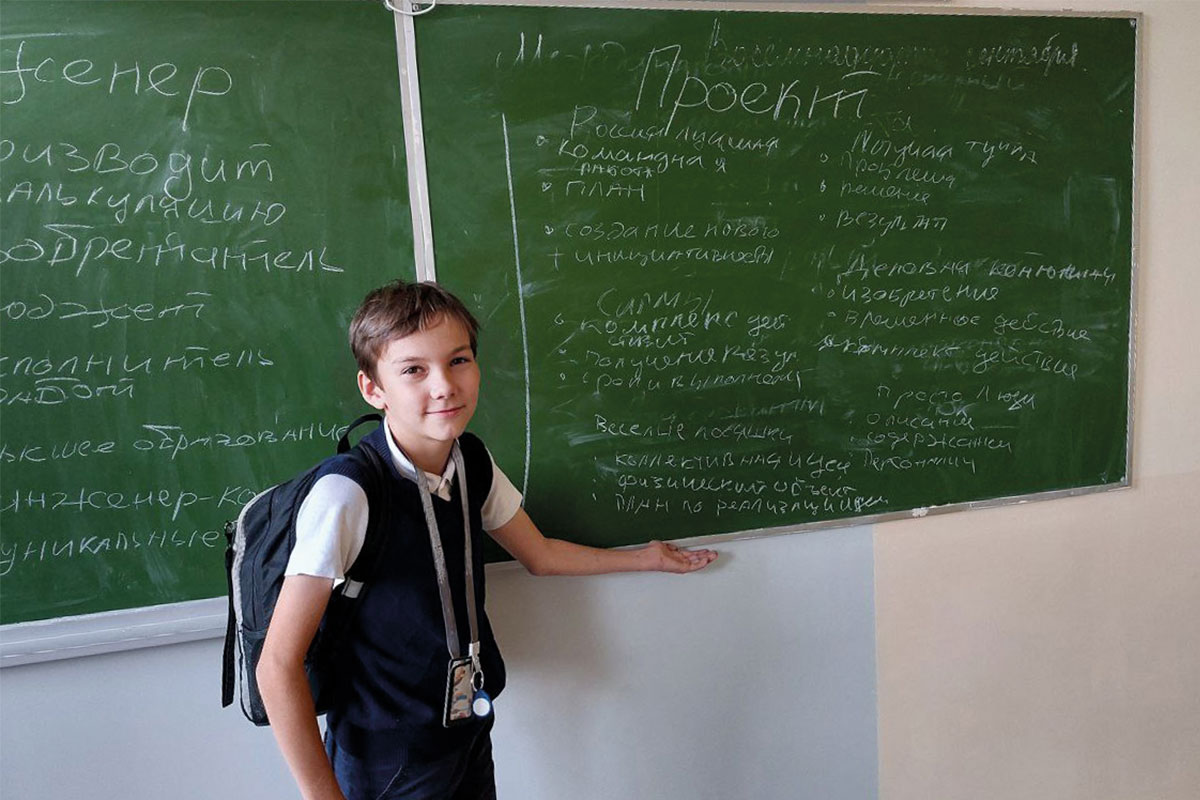 женер
оизводит
алькуляцию
обретатель
юджет
сполнитель
работ
ысшее образование
инженер-ко
уникальные
сентября
Проект
Россия лучшая
Командная
работа
ПЛАН
создание нового
+ инициативность
Силмы
Комплекс дей
ствий
получения резул
сроки выполнения
Веселые лосяшки
коллективная идея
физический объект
План по реализации
Могучая туча
Проблема
решение
Результат
Деловая
изобретение
временное действие
комплект действия
Просто Люди
описания
содержания